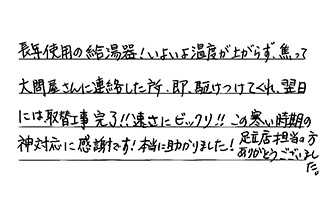 長年使用の給湯器！いよいよ温度が上がらず、焦って
大問屋さんに連絡した所、即、駆けつけてくれ、翌日
には取替工事完了!!速さにビックリ!!この寒い時期の
神対応に感謝です！本当に助かりました！足立店担当の方
ありがとうございまし
た。